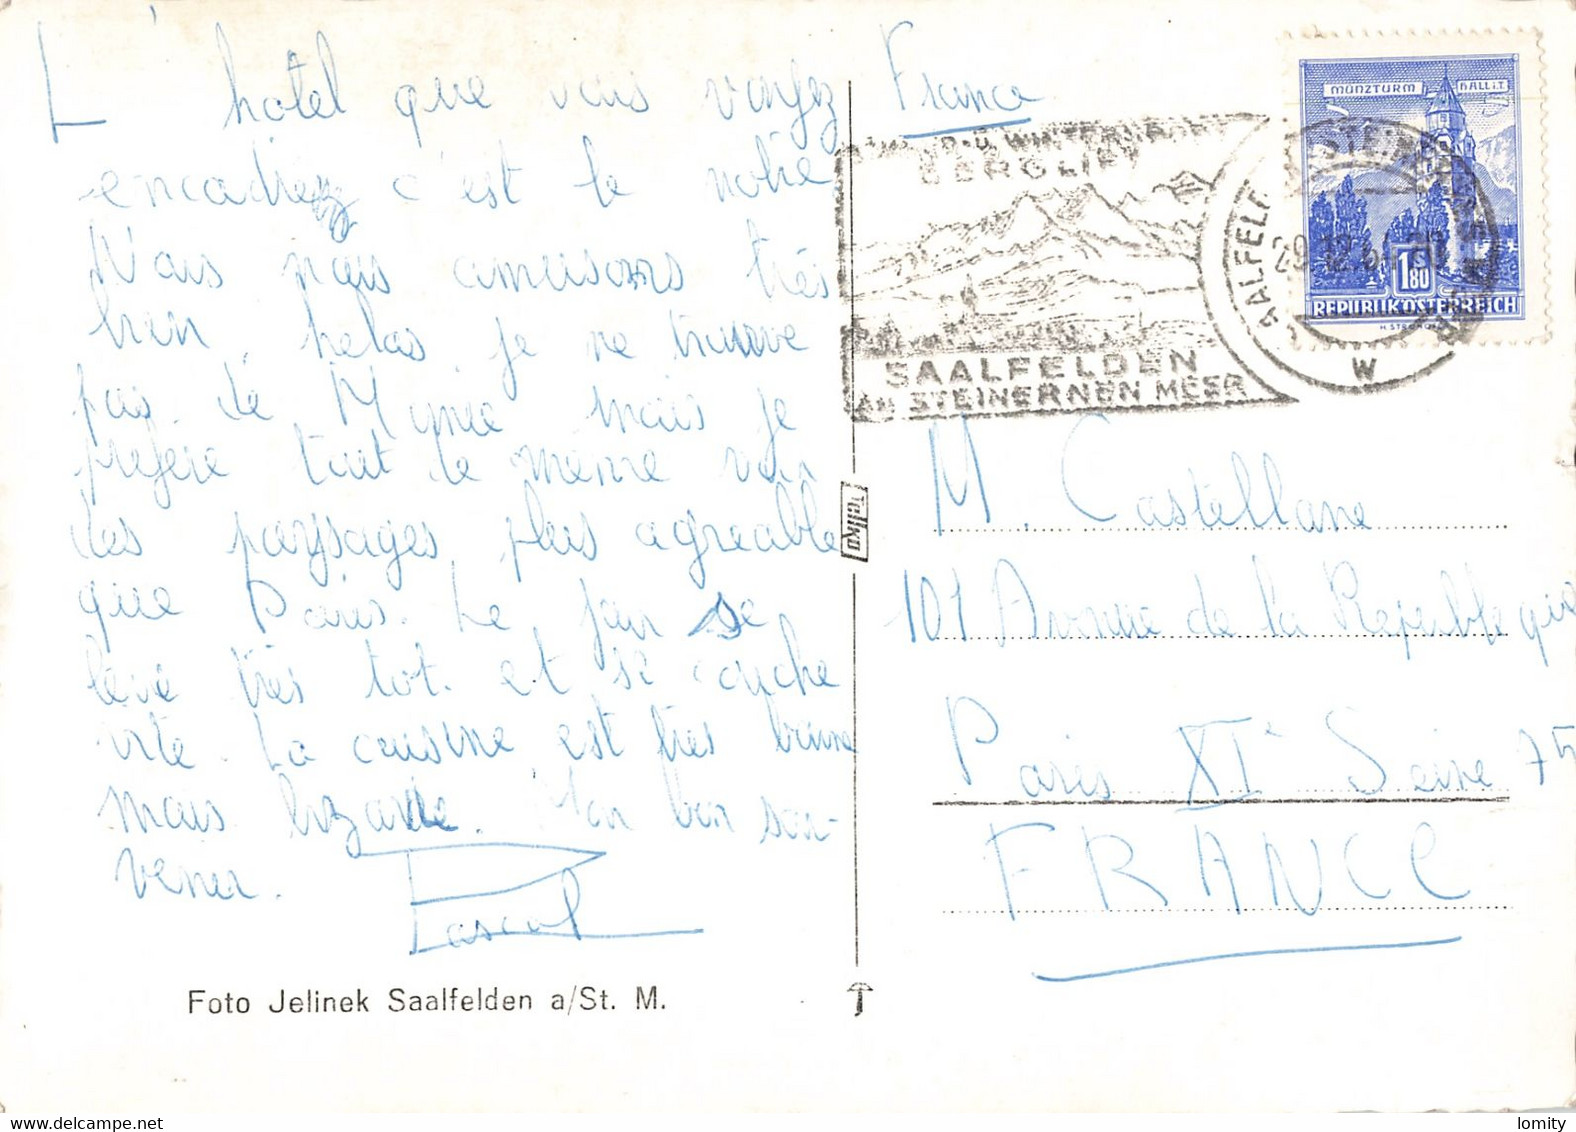 L'hotel que vous voyez
encadrez c'est le notre
Nous nous amusons très
bien, helas je ne trouve
pas de Monie mais je
préfère tout de meme voir
des paysages plus agreable
que Paris. Le jour se
leve très tot. et se couche
vite. La cuisine est très bonne
mais bizarde. Ton bon sou-
venir.
Pascal
Foto Jelinek Saalfelden a/St. M.
Tellko
France
MÜNZTURM HALL i.T.
1.80 S
REPUBLIK ÖSTERREICH
SOMMER-U. WINTERSPORT
BERGLIFT
SAALFELDEN
AM STEINERNEN MEER
SAALFELDEN AM STEINERNEN MEER
29.12.64-20
W
M. Castellane
101 Avenue de la Republique
Paris XIe Seine 75
FRANCE
lomity